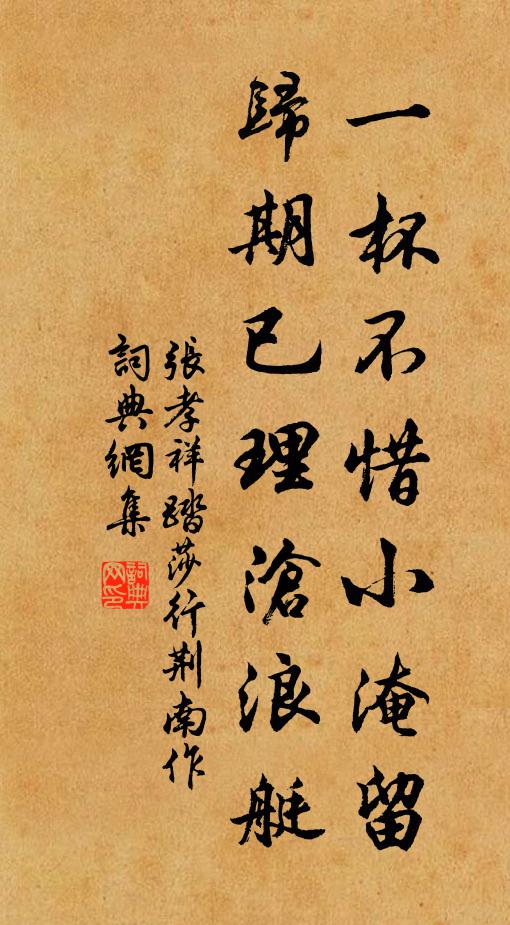 一杯不惜小淹留
歸期已理滄浪艇
張孝祥踏莎行荆南作
詞典網集
詞典网印